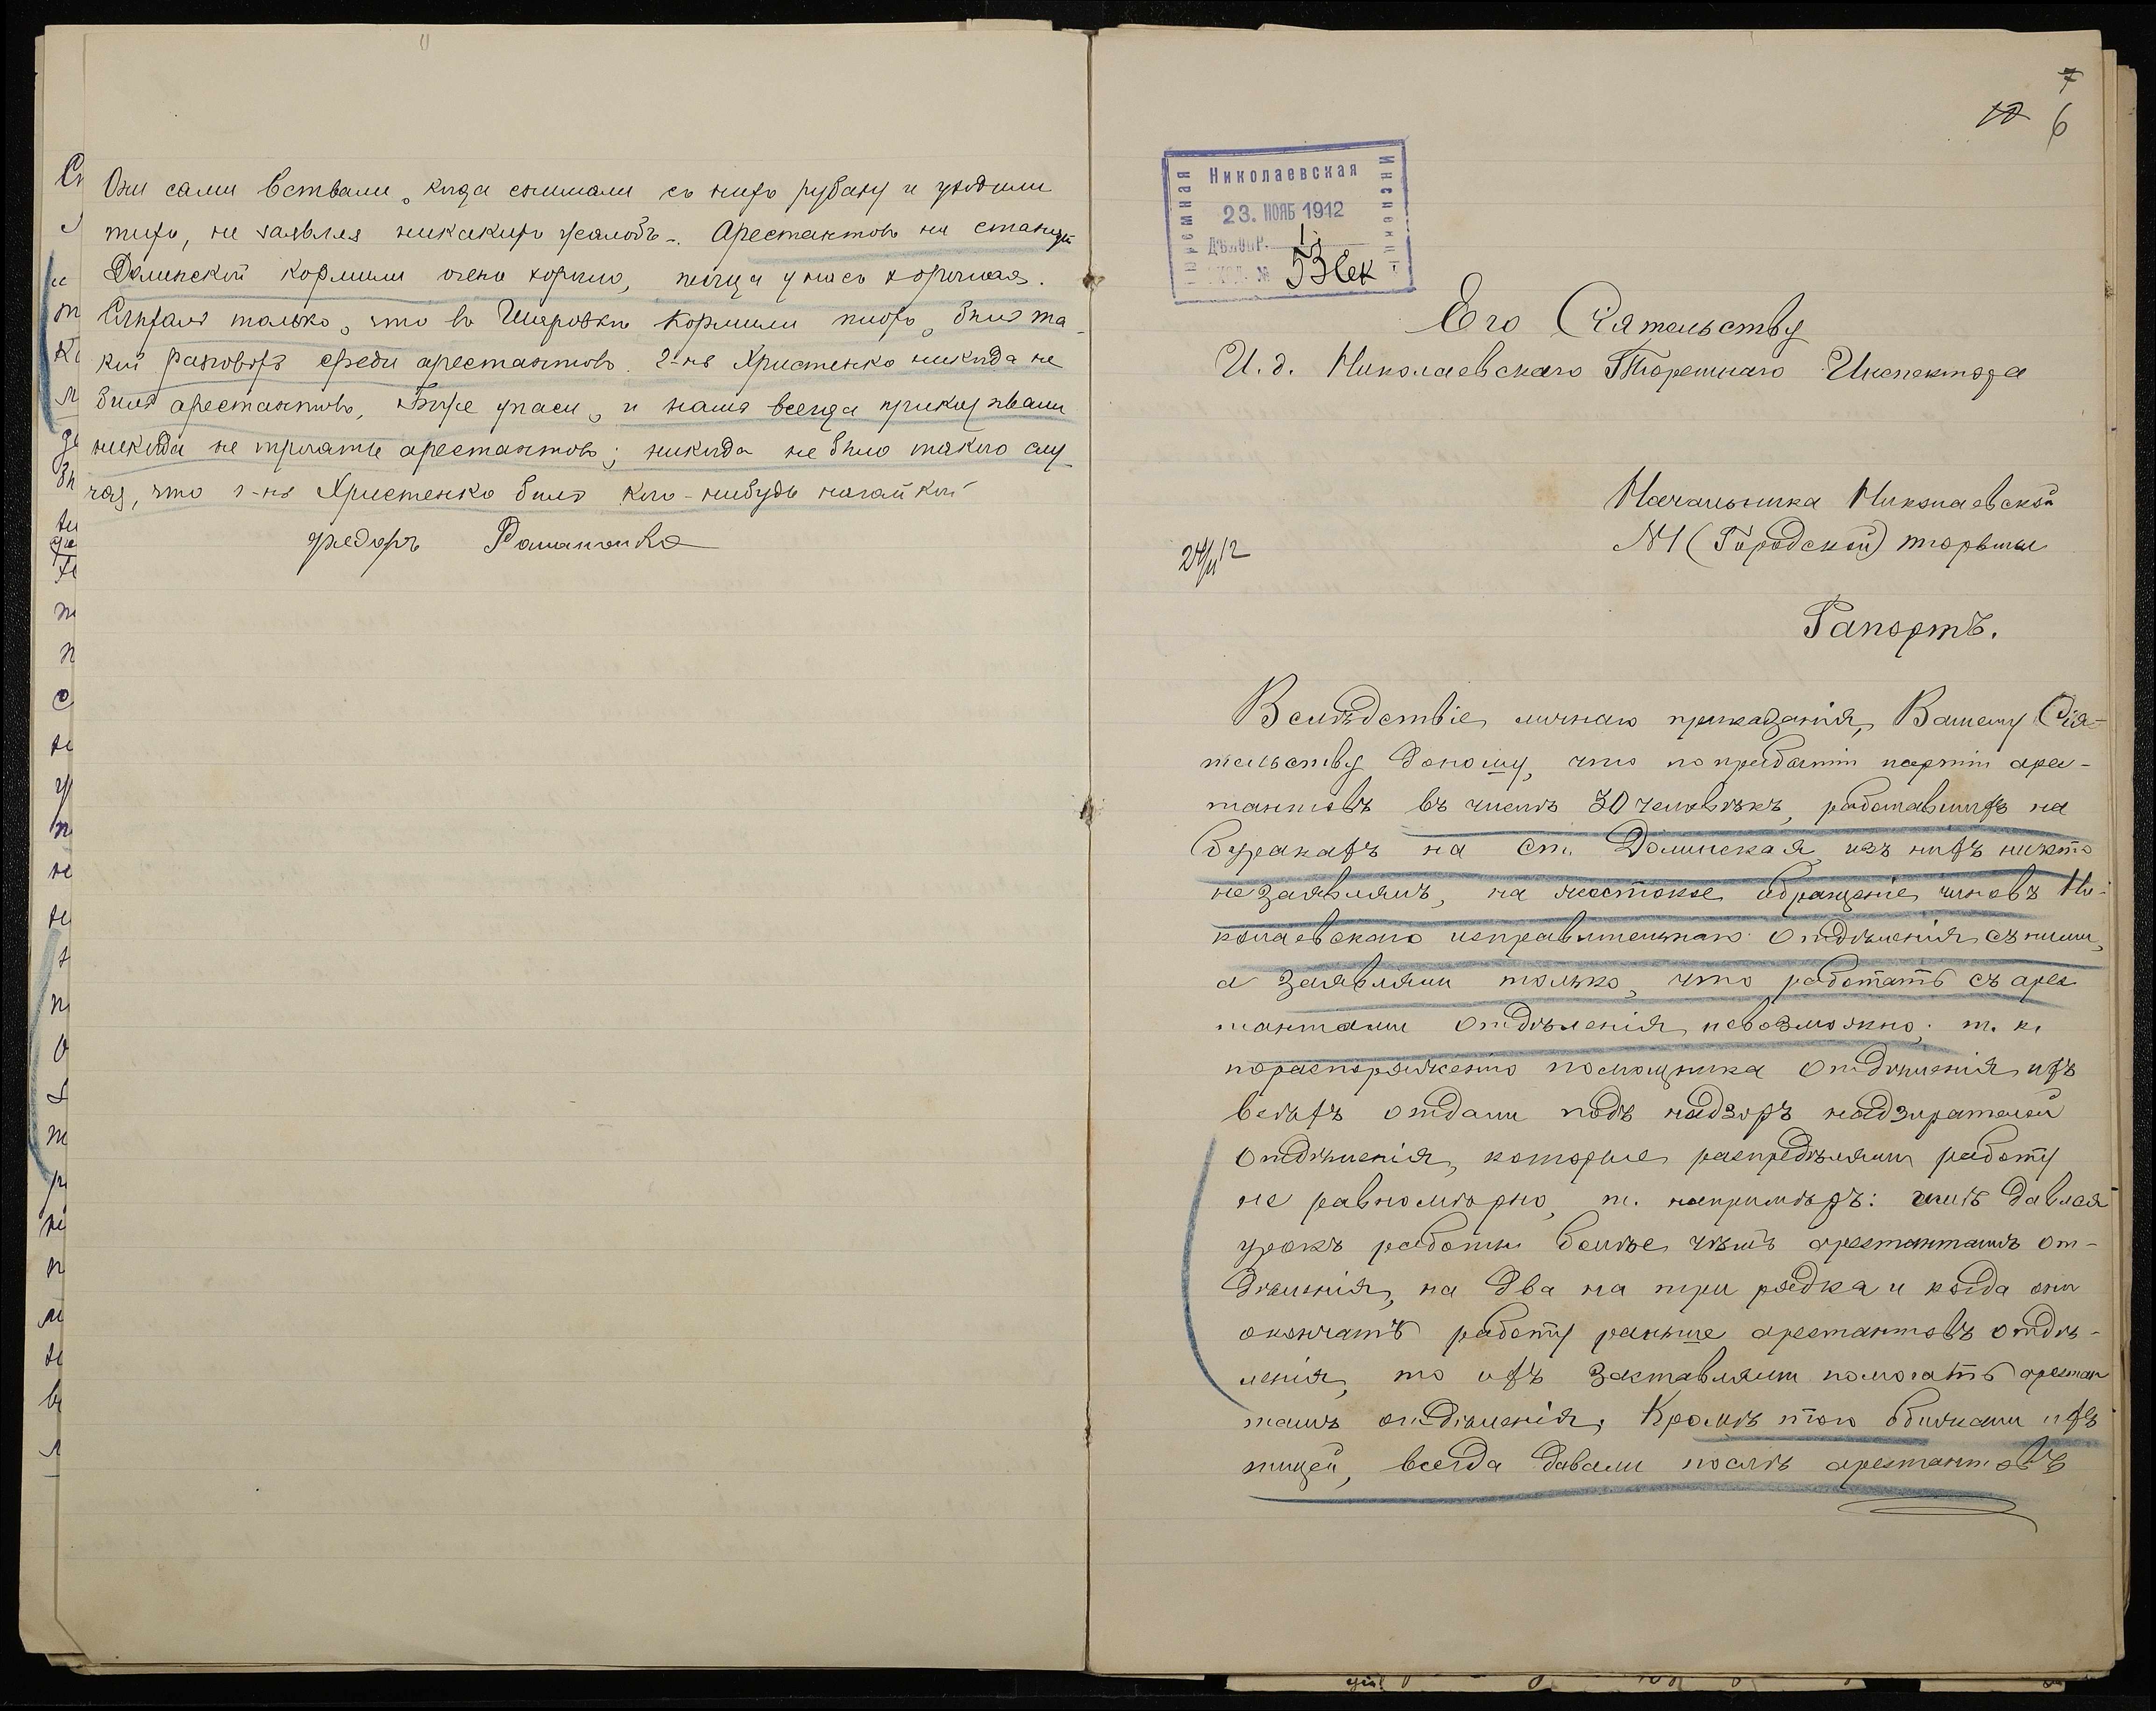 Они сами вставали, когда снимали съ нихъ рубаху и уходили
тихо, не заявляя никакихъ жалобъ. Арестантовъ на станціи
Долинской кормили очень хорошо, пища у насъ хорошая.
Слыхалъ только, что въ Шировкѣ кормили плохо, былъ та-
кой разговоръ среди арестантовъ. Г-нъ Христенко никогда не
билъ арестантовъ, Боже упаси, и намъ всегда приказывали
никогда не трогать арестантовъ; никогда не было такого слу-
чая, что г-нъ Христенко билъ кого-нибудь нагайкой
Федоръ
7
10 6
Николаевская
Тюремная
Инспекція
23. НОЯБ 1912
ДѢЛОПР. 1
№ 53 сек
Его Сіятельству
И. д. Николаевскаго Тюремнаго Инспектора
Начальника Николаевской
№1 (Городской) тюрьмы
24/11 12
Рапортъ.
Вслѣдствіе личнаго приказанія, Вашему Сія-
тельству доношу, что по прибытіи партіи арес-
тантовъ въ числѣ 30 человѣкъ, работавшихъ на
буракахъ на ст. Долинская, изъ нихъ никто
не заявлялъ, на жестокое обращеніе чиновъ Ни-
колаевскаго исправительнаго отдѣленія съ ними,
а заявляли только, что работать съ арес
тантами отдѣленія невозможно, т. к.
по распоряженію помощника отдѣленія ихъ
всѣхъ отдали подъ надзоръ надзирателей
отдѣленія, которые распредѣляли работу
не равномѣрно, т. напримѣръ: имъ давался
урокъ работы болѣе чѣмъ арестантамъ от-
дѣленія, на два на три рядка и когда они
окончатъ работу раньше арестантовъ отдѣ-
ленія, то ихъ заставляли помогать арестан
тамъ отдѣленія, Кромѣ того обижали ихъ
пищей, всегда давали послѣ арестантовъ